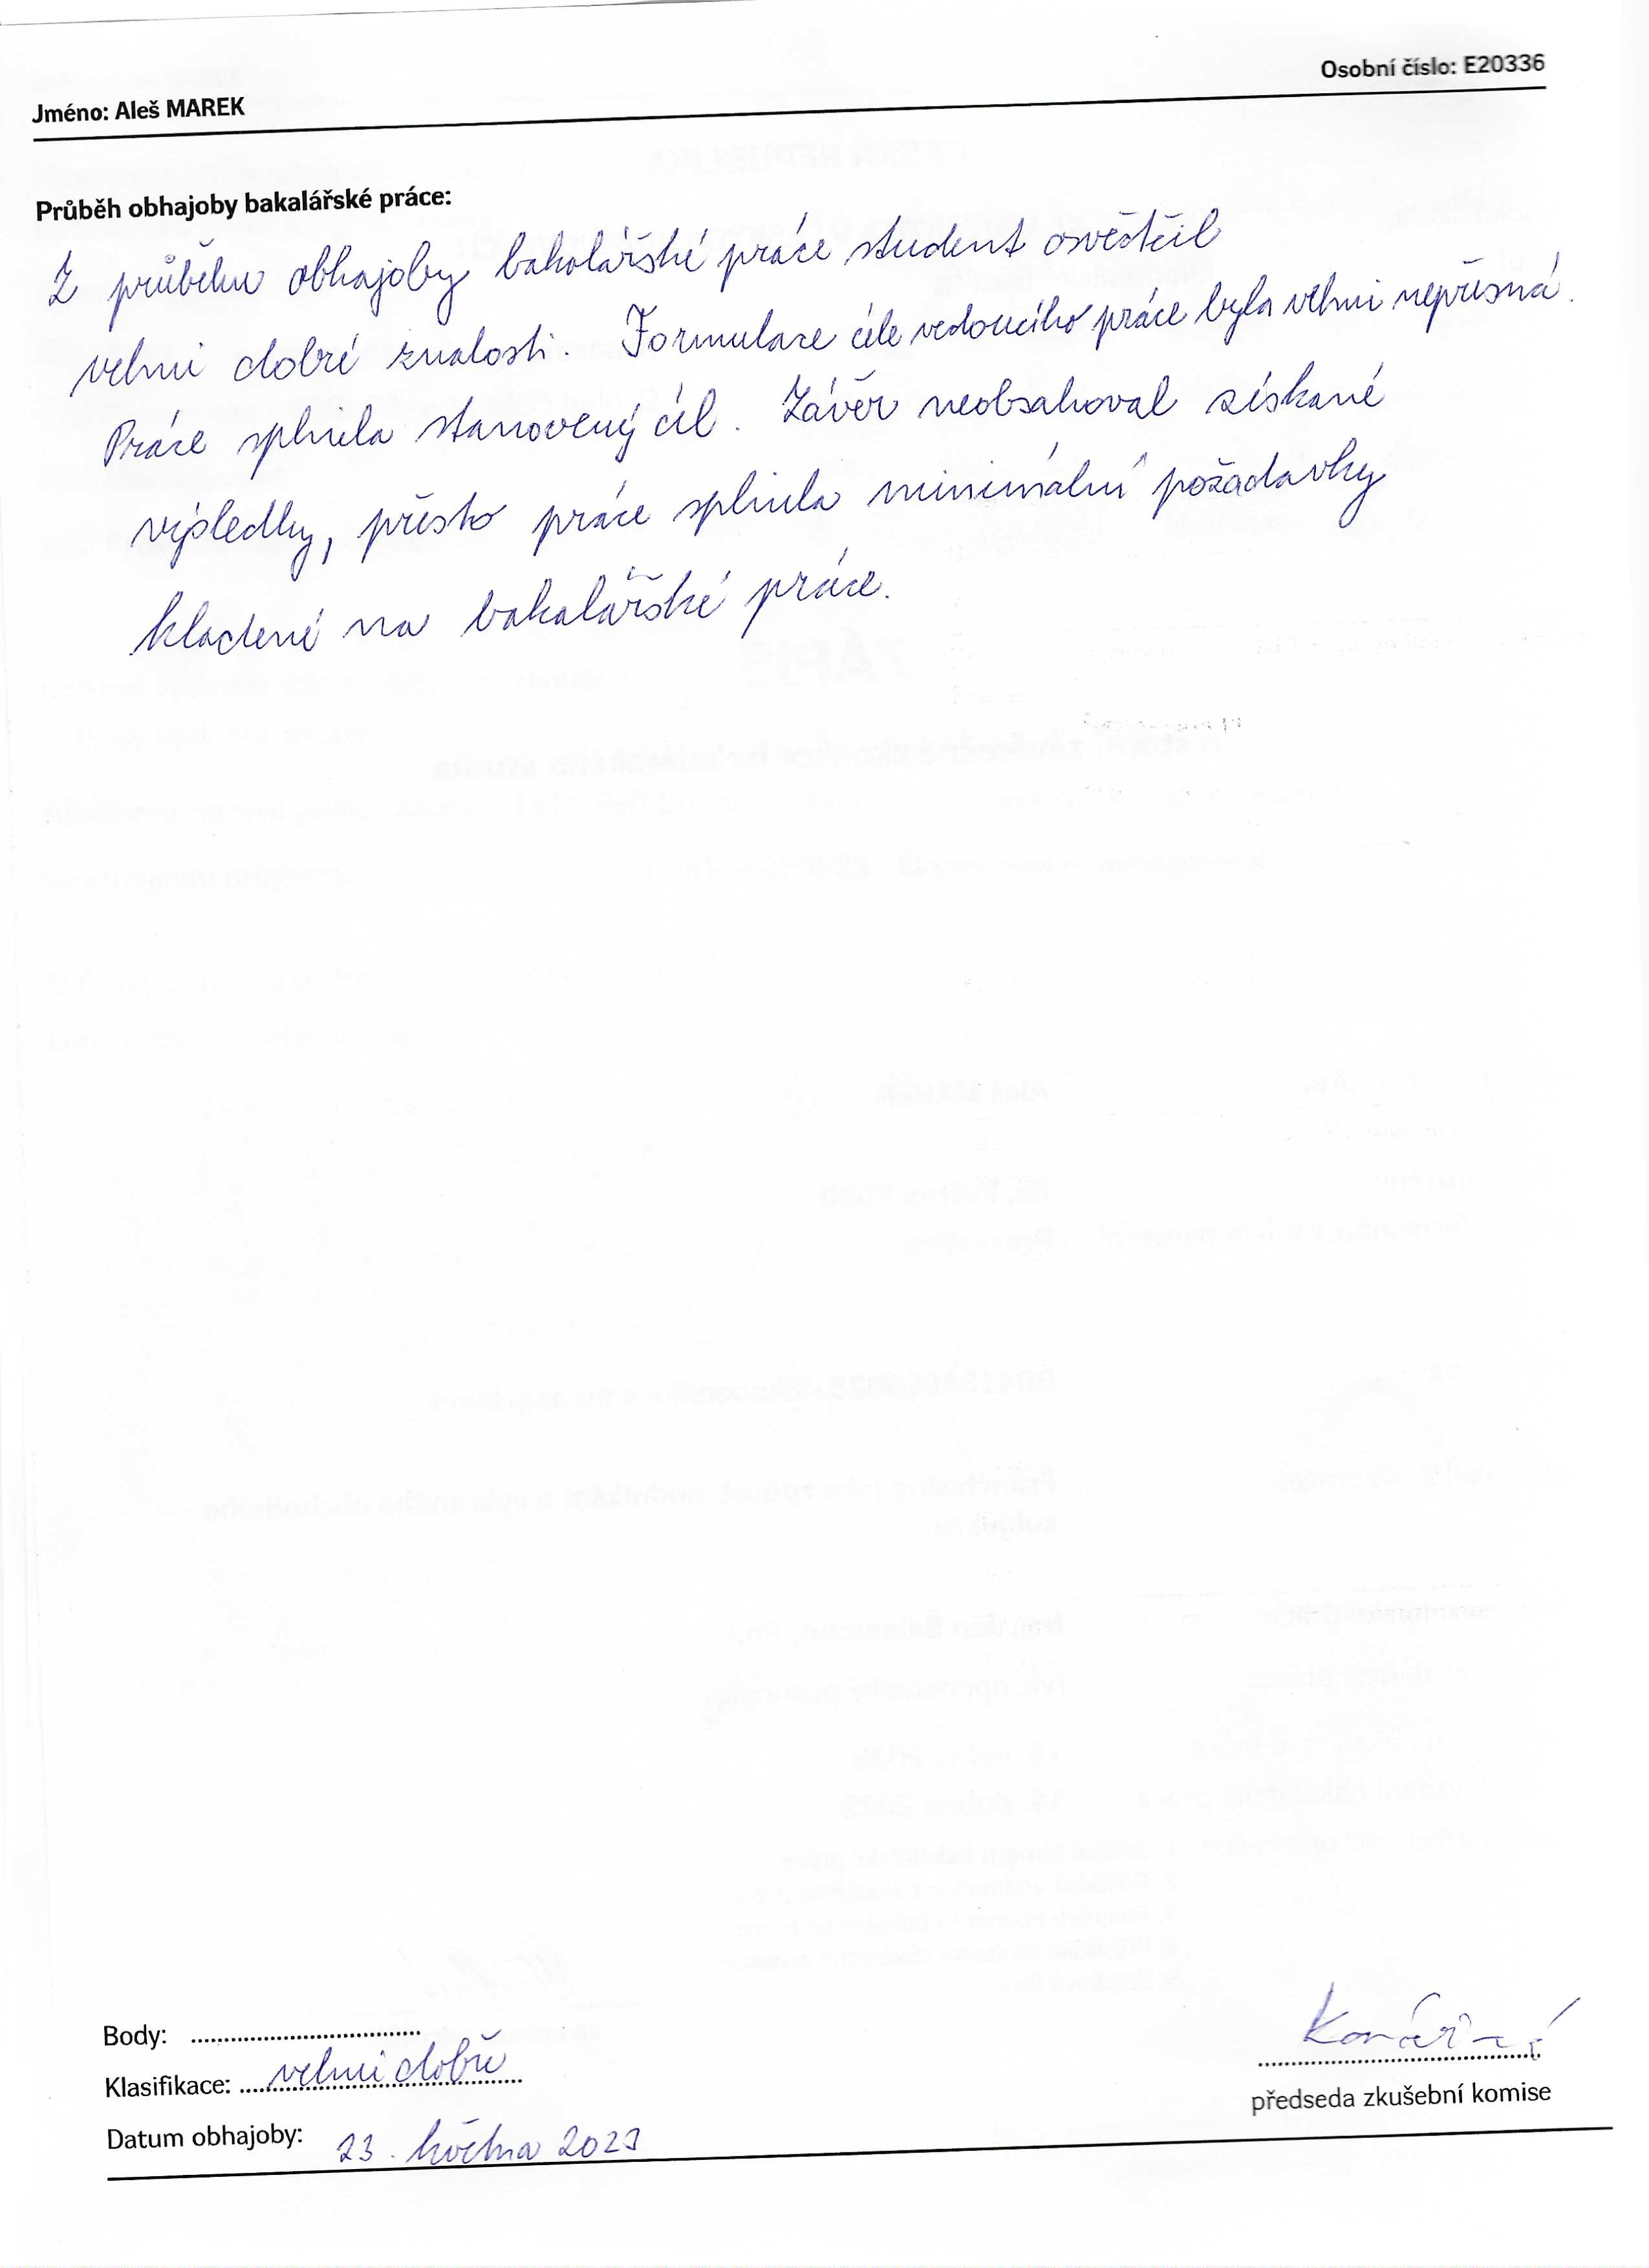 Osobní číslo: E20336
Jméno: Aleš MAREK
Průběh obhajoby bakalářské práce:
Z průběhu obhajoby bakalářské práce student osvědčil
velmi dobré znalosti. Formulace cíle vedoucího práce byla velmi nepřesná.
Práce splnila stanovený cíl. Závěr neobsahoval získané
výsledky, přesto práce splnila minimální požadavky
kladené na bakalářské práce.
Body:
Klasifikace: velmi dobře
předseda zkušební komise
Datum obhajoby: 23. května 2023